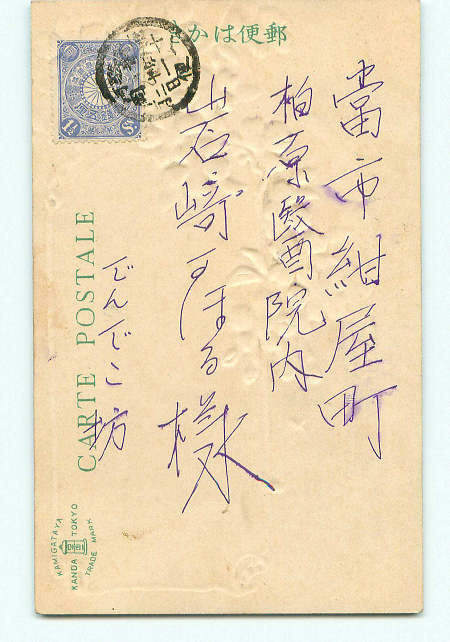 郵便はかき
當市紺屋町
柏原醫院内
岩崎すほる様
でんでこ坊
CARTE POSTALE
KAMIGATAYA
KANDA TOKYO
TRADE MARK
1½ Sn